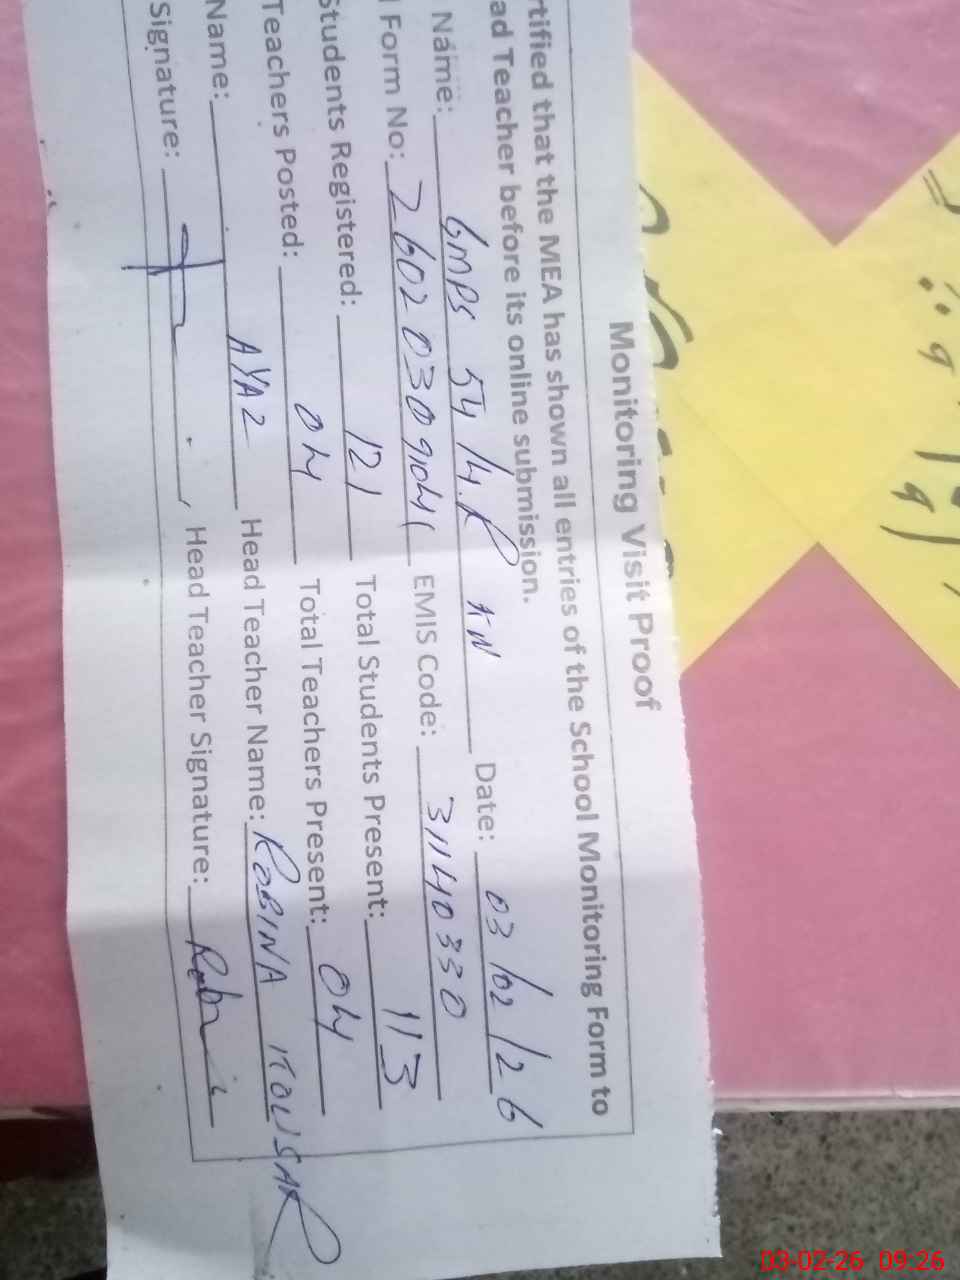 Monitoring Visit Proof
rtified that the MEA has shown all entries of the School Monitoring Form to
ad Teacher before its online submission.
Name: GMPS 54/4.R KW Date: 03/02/26
Form No: 26020309041 EMIS Code: 31140330
Students Registered: 121 Total Students Present: 113
Teachers Posted: 04 Total Teachers Present: 04
Name: AYAZ Head Teacher Name: ROBINA KOUSAR
Signature: Head Teacher Signature:
03-02-26 09:26